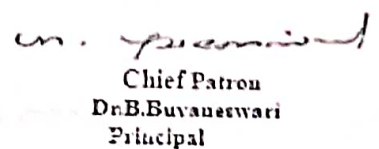 Chief Patron
Dr.B.Buvaneswari
Principal